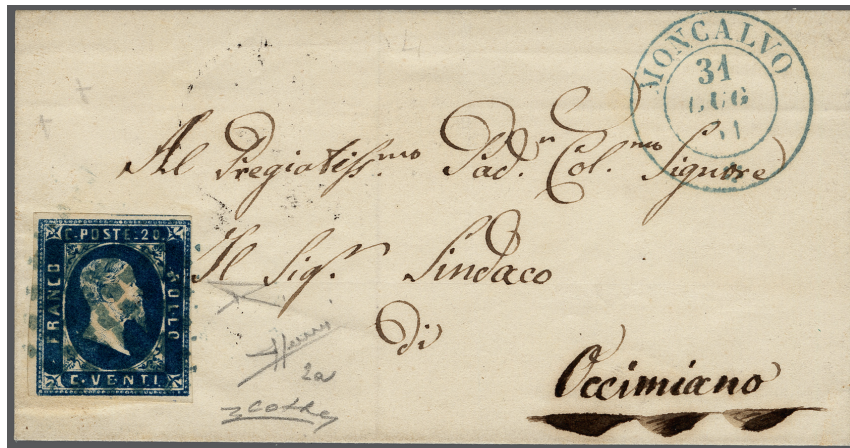 MONCALVO
31
LUG
51
Al Pregiatiss.mo Pad.n Col.mo Signore
Il Sig.r Sindaco
di
Occimiano
C. POSTE. 20.
FRANCO
BOLLO
C. VENTI
2a